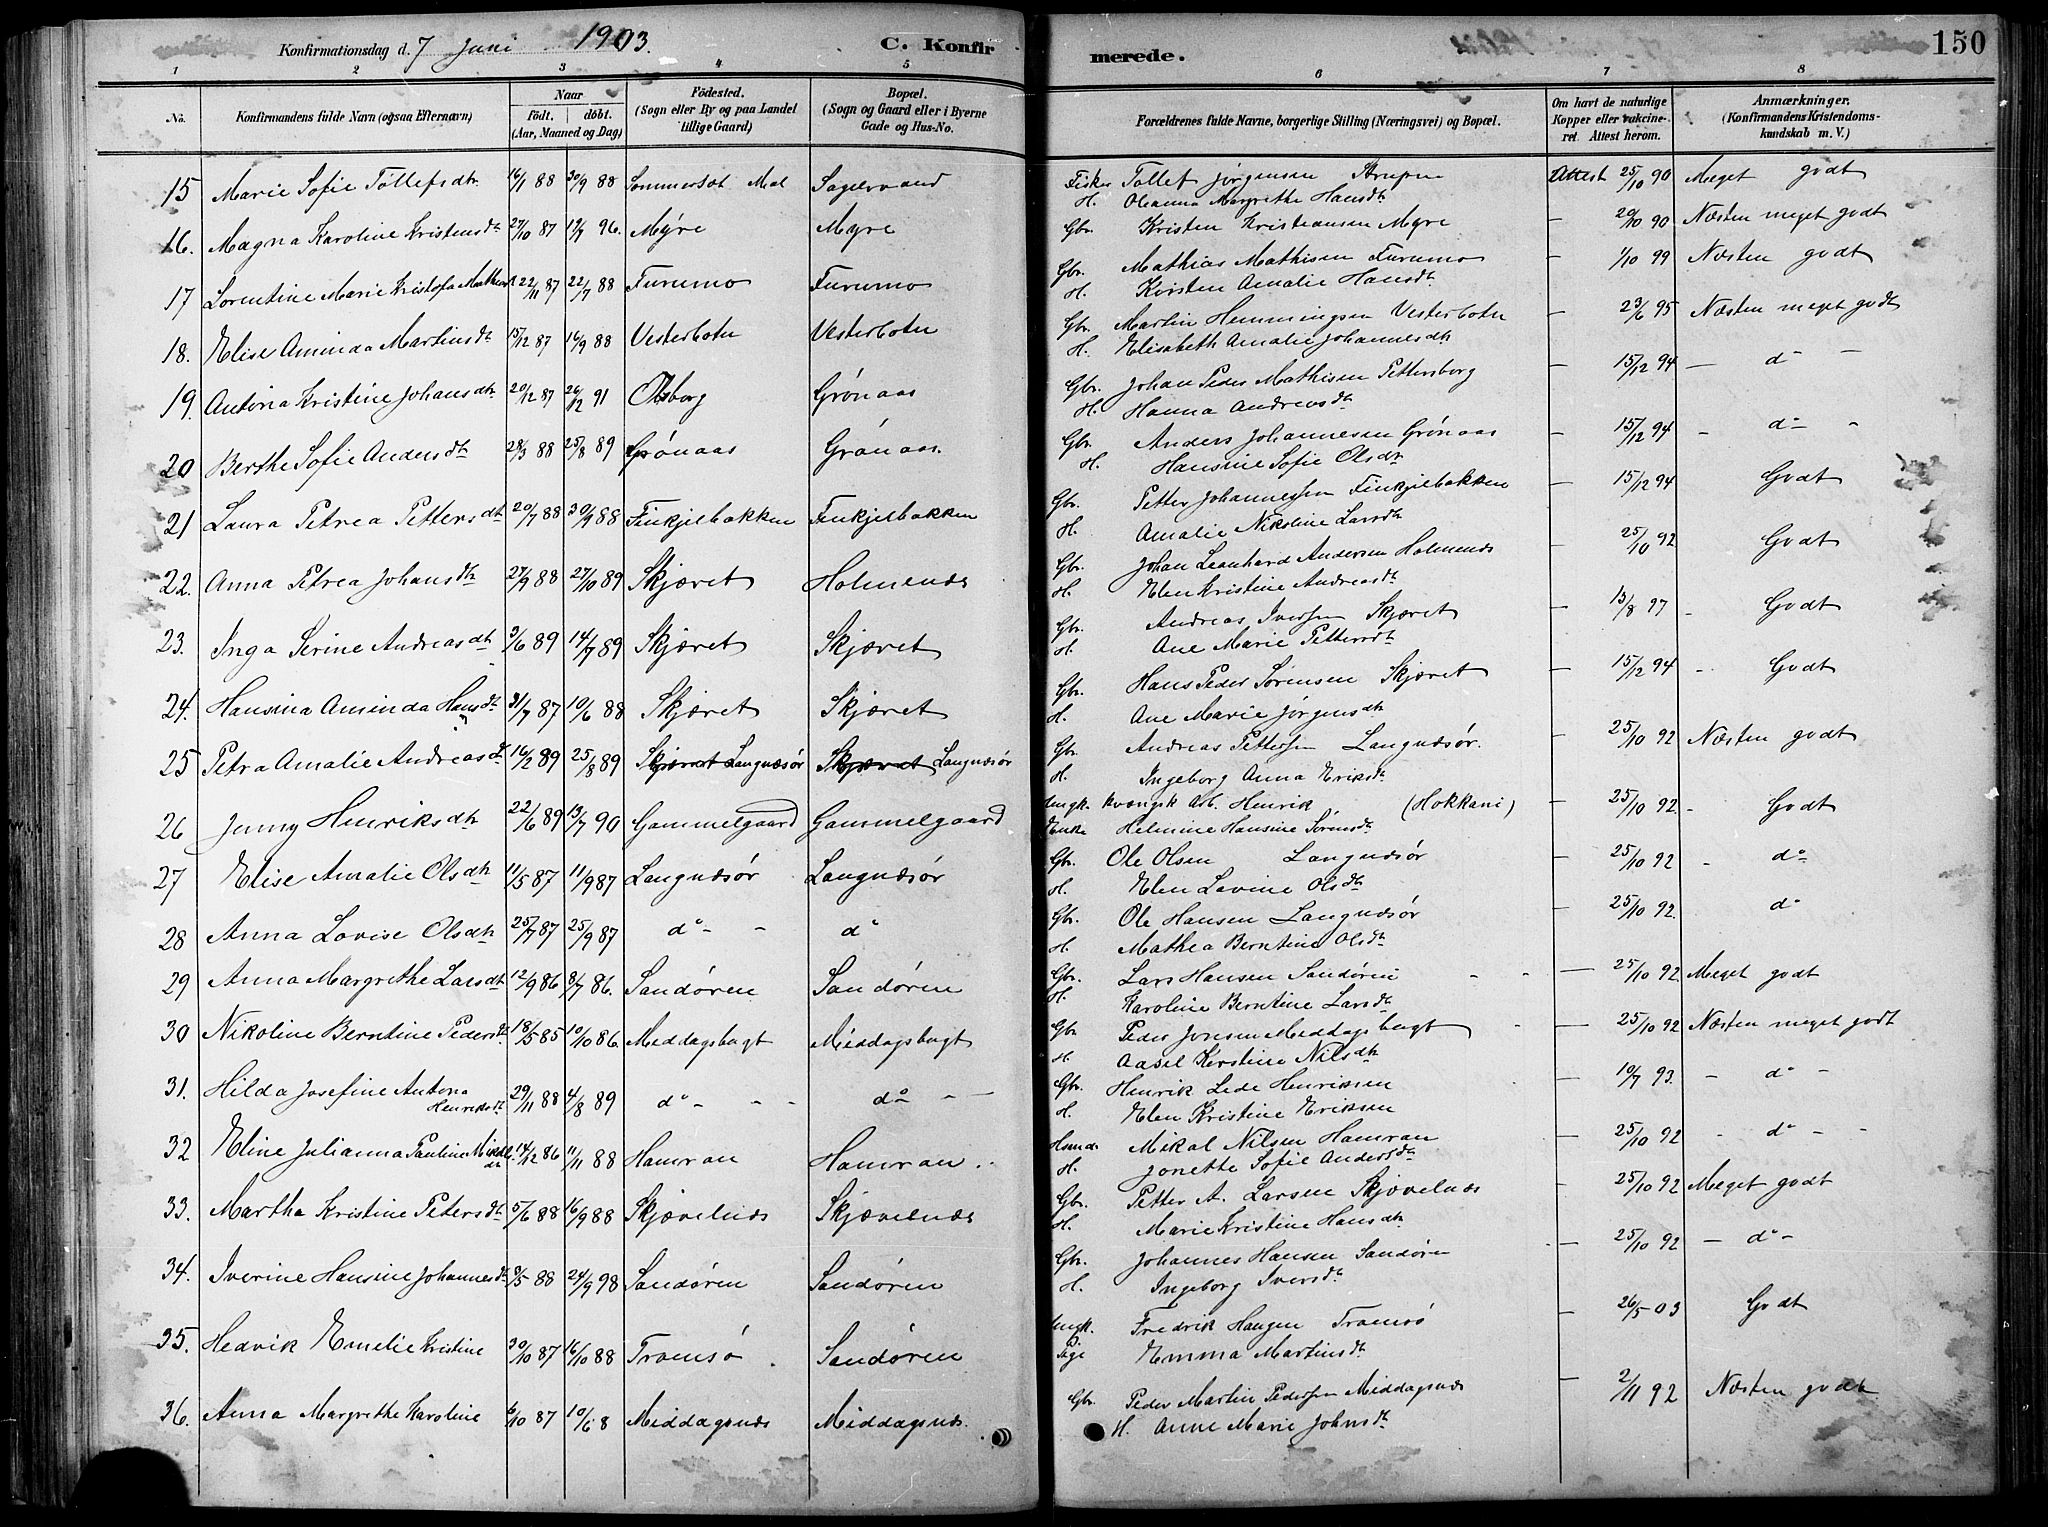 Konfirmationsdag d. 7 Juni 1903. C. Konfirmerede. 150
1 2 3 4 5 6 7 8
No. Konfirmandens fulde Navn (ogsaa Efternavn) Naar født. døbt. (Aar, Maaned og Dag) Fødested. (Sogn eller By og paa Landet tillige Gaard) Bopæl. (Sogn og Gaard eller i Byerne Gade og Hus-No. Forældrenes fulde Navne, borgerlige Stilling (Næringsvei) og Bopæl. Om havt de naturlige Kopper eller vakcineret. Attest herom. Anmærkninger. (Konfirmandens Kristendomskundskab m. V.)
15 Marie Sofie Tollefsdtr 16/1 88 30/9 88 Sommersæt Mal Sagelvvand Fisker Tollef Jørgensen Attest 25/10 90 Meget godt
H. Oleanna Margrethe Hansdtr
16. Magna Karoline Kristensdtr 27/10 87 96. Myre Myre Gbr. Kristen Kristiansen Myre — 20/10 90 Næsten meget godt
17 Lorentine Marie Kristofa 22/11 87 22/7 88 Furumo Furumo Gbr. Mathias Mathisen Furumo — 1/10 99 Næsten godt
H. Kirsten Amalie Hansdtr
18. Elise Aminda Martinsdtr 15/12 87 16/9 88 Vesterbotn Vesterbotn Gbr. Martin Hemmingsen Vesterbotn — 23/6 95 Næsten meget godt
H. Elisabeth Amalie Johannesdtr
19. Antona Kristine Johansdtr 20/12 87 26/12 91 Olsborg Grønaas Gbr. Johan Peder Mathisen Pettersborg — 15/12 94 — do —
H. Hanna Andreasdtr
20 Berthe Sofie Andersdtr 28/3 88 25/8 89 Grønaas Grønaas. Gbr. Anders Johannesen Grønaas — 15/12 94 — do —
H. Hansine Sofie Olsdtr
21 Laura Petrea Pettersdtr 20/7 88 30/9 88 Finkjelbakken Finkjelbakken Gbr. Petter Johannessen Finkjelbakken — 15/12 94 Godt
H. Amalie Nikoline Larsdtr
22. Anna Petrea Johansdtr 27/9 88 27/10 89 Skjæret Holmenæs Gbr. Johan Leonhard Andersen Holmenæs 25/10 92. Godt
H. Elen Kristine Andreasdtr
23. Inga Serine Andreasdtr 3/6 89 14/7 89 Skjæret Skjæret Gbr. Andreas Iversen Skjæret — 13/8 97 — Godt
H. Ane Marie Pettersdtr
24. Hansina Aminda Hansdtr 31/7 87 10/6 88 Skjæret Skjæret Gbr. Hans Peder Sørensen Skjæret — 15/12 94 — Godt
H. Ane Marie Jørgensdtr
25 Petra Amalie Andreasdtr 16/2 89 25/8 89 Skjæret Langnæsør Skjæret Langnæsør Gbr. Andreas Pettersen Langnæsør. — 25/10 92 Næsten godt
H. Ingeborg Anna Eriksdtr
26 Jenny Henriksdtr 22/6 89 13/7 90 Gammelgaard Gammelgaard Ungk. kvænsk Arb. Henrik (Hokkani) — 25/10 92. — Godt
Enke Helmine Hansine Sørensdtr
27 Elise Amalie Olsdtr 11/5 87 11/9 87 Langnæsør Langnæsør Gbr. Ole Olsen Langnæsør — 25/10 92 — do
H. Elen Lovine Olsdtr
28 Anna Lovise Olsdtr 25/7 87 25/9 87 do — — do Gbr. Ole Hansen Langnæsør — 25/10 92. do
H. Mathea Berntine Olsdtr
29 Anna Margrethe Larsdtr 12/9 86 8/7 86. Sandøren Sandøren Gbr. Lars Hansen Sandøren — 25/10 92 Meget godt
H. Karoline Berntine Larsdtr
30 Nikoline Berntine Pedersdtr 18/5 85 10/10 86. Middagsbugt Middagsbugt Gbr Peder Joresen Middagsbugt 25/10 92 Næsten meget godt
H. Aasel Kerstine Nilsdtr
31. Hilda Josefine Antona Henriksdtr 29/11 88 4/8 89 do — — — do — — Gbr. Henrik Lede Henriksen 10/7 93. — do —
H. Elen Kristine Eriksen
32 Eline Julianna Pauline Mikalsdtr 14/12 86 11/11 88 Hamran Hamran Hsmd. Mikal Nilsen Hamran 25/10 92 — do — —
H. Jonette Sofie Andersdtr
33. Martha Kristine Petersdtr 5/6 88 16/9 88 Skjævelnæs Skjævelnæs Gbr. Petter A. Larsen Skjævelnæs — 25/10 92 Meget godt
H. Marie Kristine Hansdtr
34. Iverine Hansine Johannesdtr 3/5 88 24/9 98 Sandøren Sandøren Gbr. Johannes Hansen Sandøren — 25/10 92 — do —
H. Ingeborg Iversdtr
35. Hedvik Emelie Kristine 30/10 87 16/10 88 Tromsø Sandøren Ungk. Fredrik Haugen Tromsø — 26/5 03 Godt
Pige Emma Martinsdtr
36. Anna Margrethe Karoline 6/10 87 10/6 8 Middagsnæs Middagsnæs. Gbr. Peder Martin Pedersen Middagsnæs — 2/11 92 Næsten godt
H. Anne Marie Johnsdtr